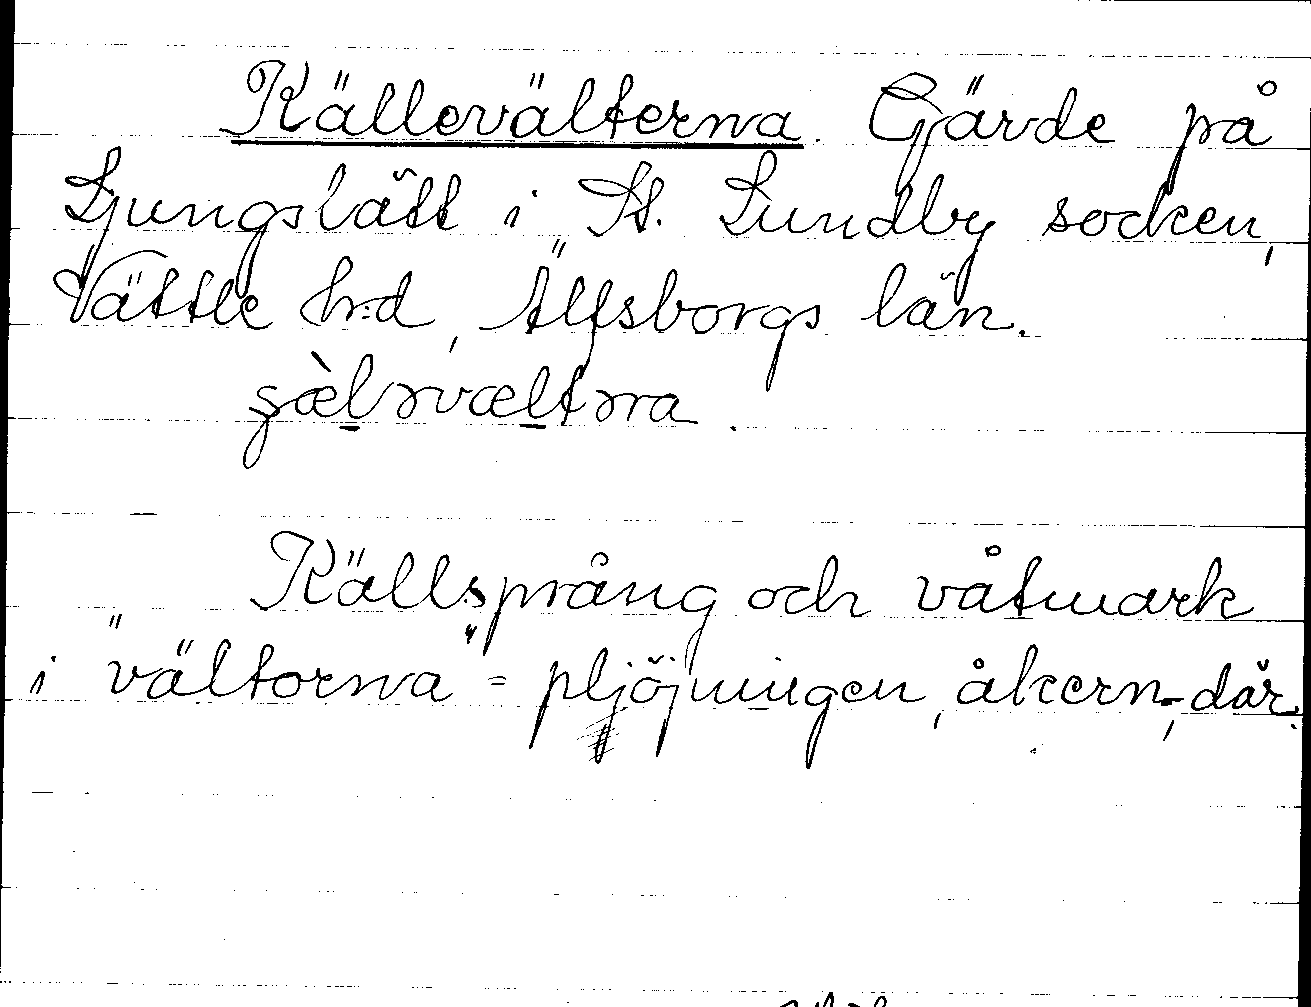 Källevälterna. Gärde på
Ljungslätt i St. Lundby socken,
Vättle h:d, Älfsborgs län.
Källsprång och våtmark
i "vältorna" = pljöjningen, åkern, där.